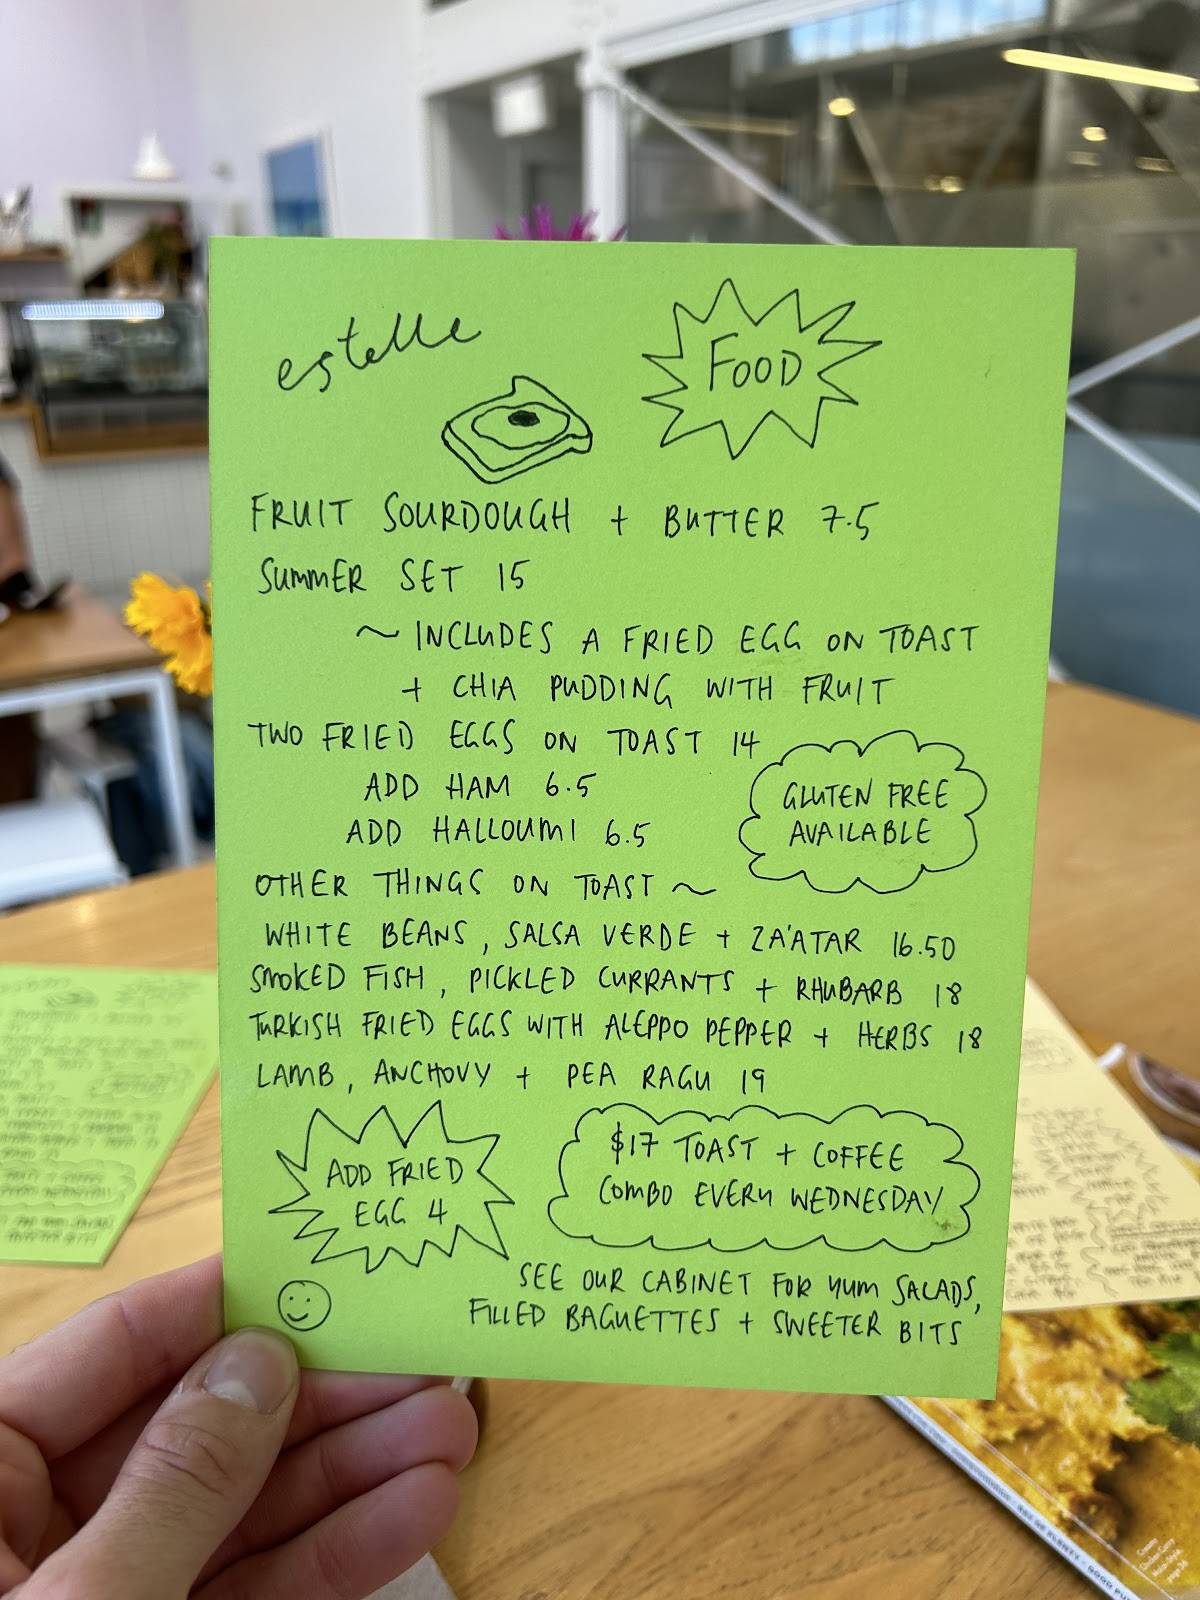 estelle
FOOD
FRUIT SOURDOUGH + BUTTER 7.5
SUMMER SET 15
~ INCLUDES A FRIED EGG ON TOAST
+ CHIA PUDDING WITH FRUIT
TWO FRIED EGGS ON TOAST 14
ADD HAM 6.5
ADD HALLOUMI 6.5
GLUTEN FREE
AVAILABLE
OTHER THINGS ON TOAST ~
WHITE BEANS, SALSA VERDE + ZA'ATAR 16.50
SMOKED FISH, PICKLED CURRANTS + RHUBARB 18
TURKISH FRIED EGGS WITH ALEPPO PEPPER + HERBS 18
LAMB, ANCHOVY + PEA RAGU 19
ADD FRIED
EGG 4
$17 TOAST + COFFEE
COMBO EVERY WEDNESDAY
SEE OUR CABINET FOR YUM SALADS,
FILLED BAGUETTES + SWEETER BITS